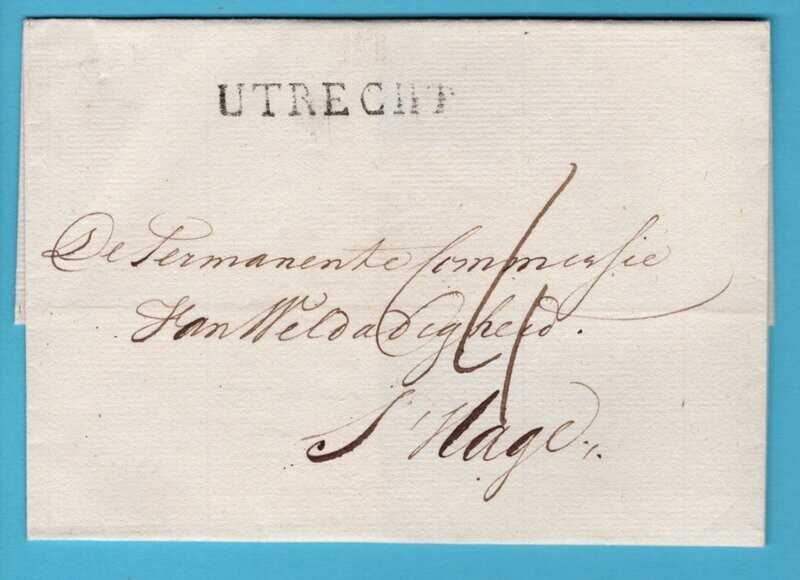 UTRECHT
De Permanente Commissie
Van Weldadigheid.
S'Hage